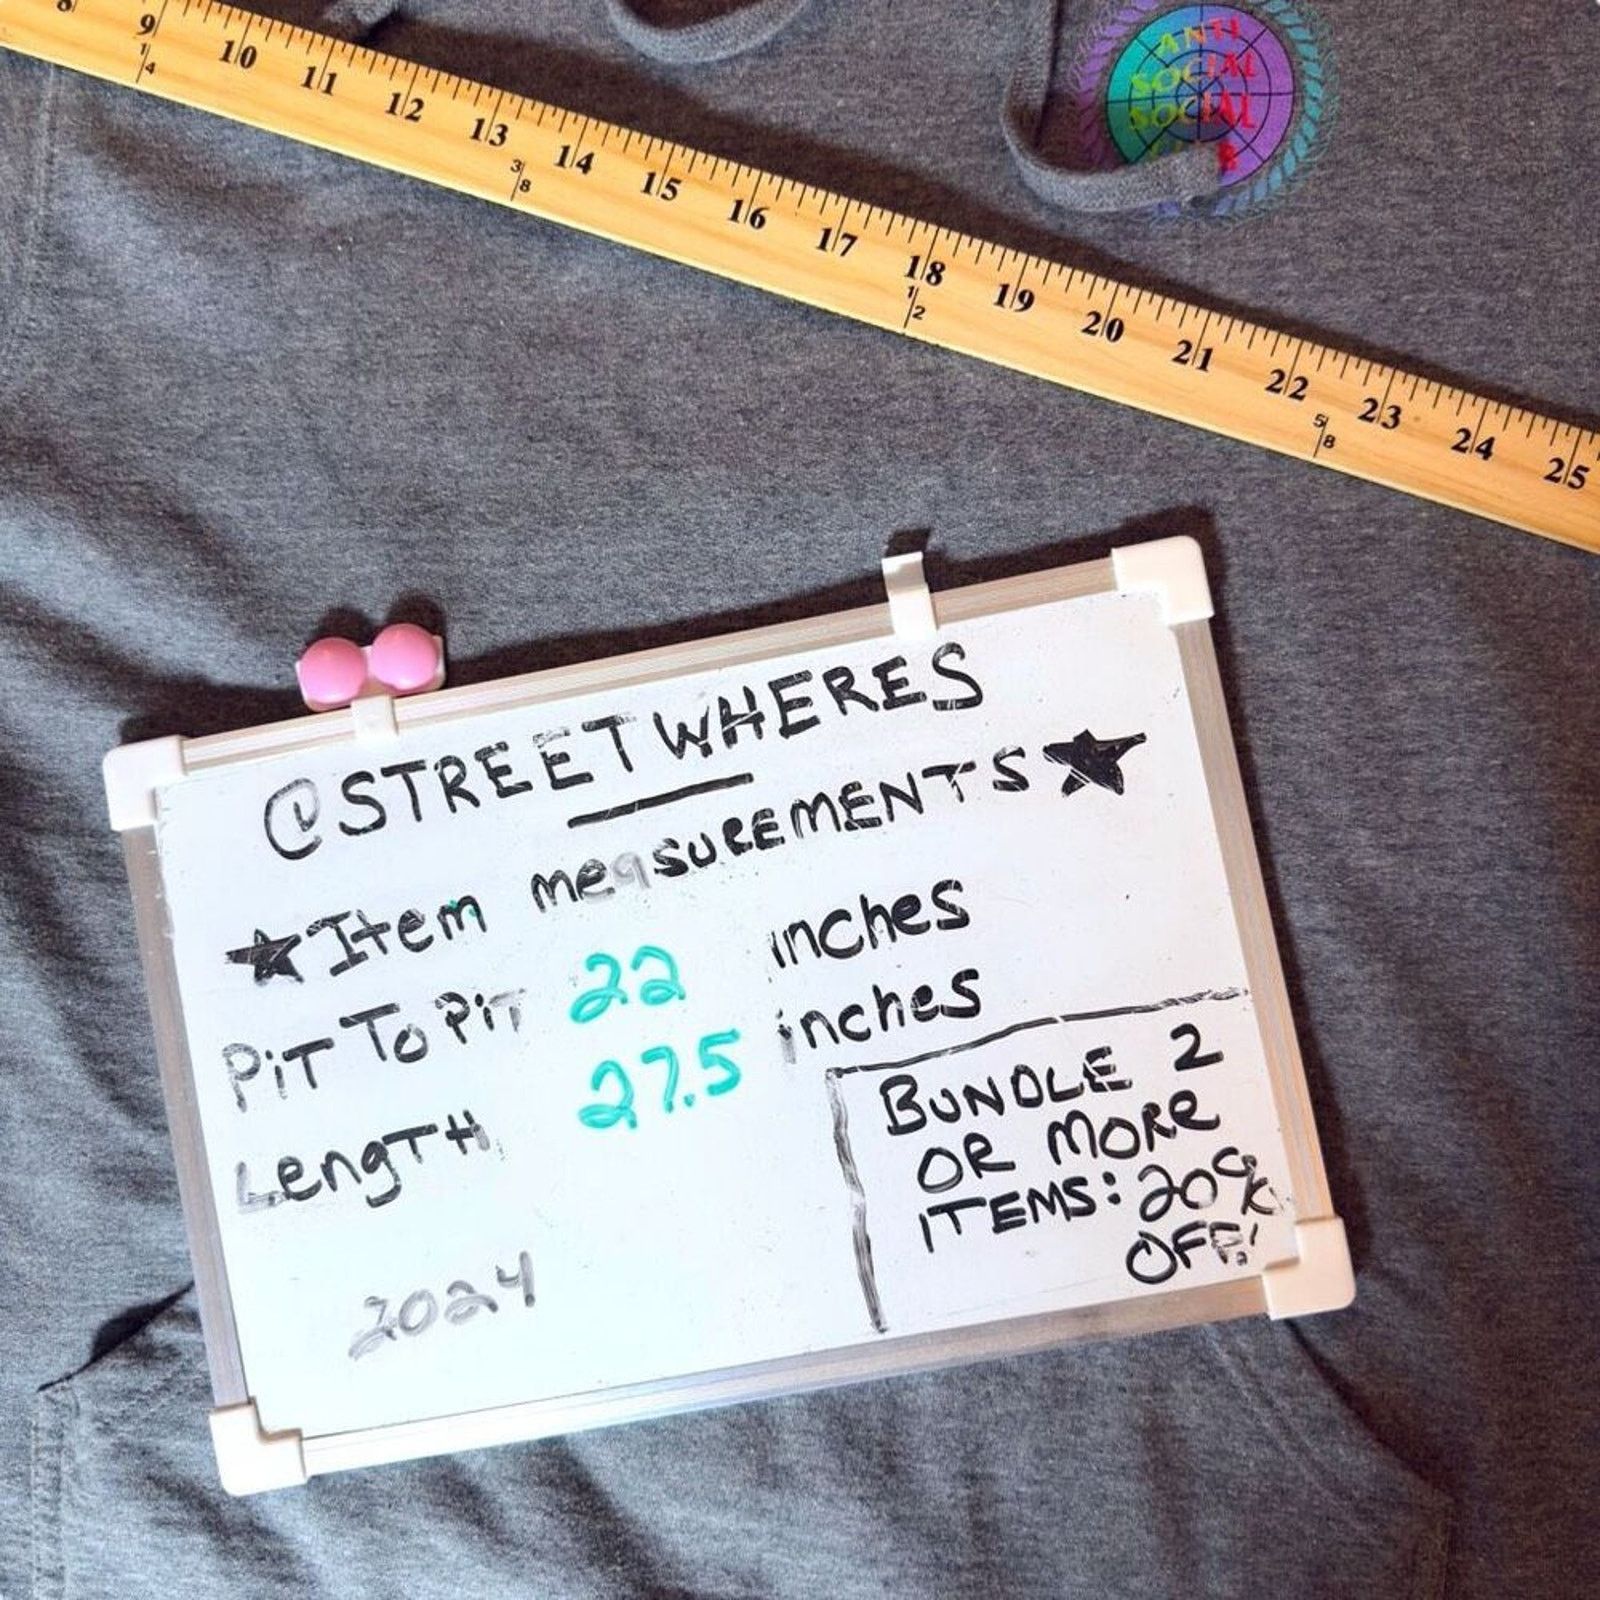 8 9 10 11 12 13 14 15 16 17 18 19 20 21 22 23 24 25
1/4 3/8 1/2 5/8
ANTI
SOCIAL
SOCIAL
@STREETWHERES
★Item meaSUREMENTS★
PiT To PiT 22 inches
LengTH 27.5 inches
2024
BUNDLE 2
OR MORE
ITEMS: 20%
OFF!